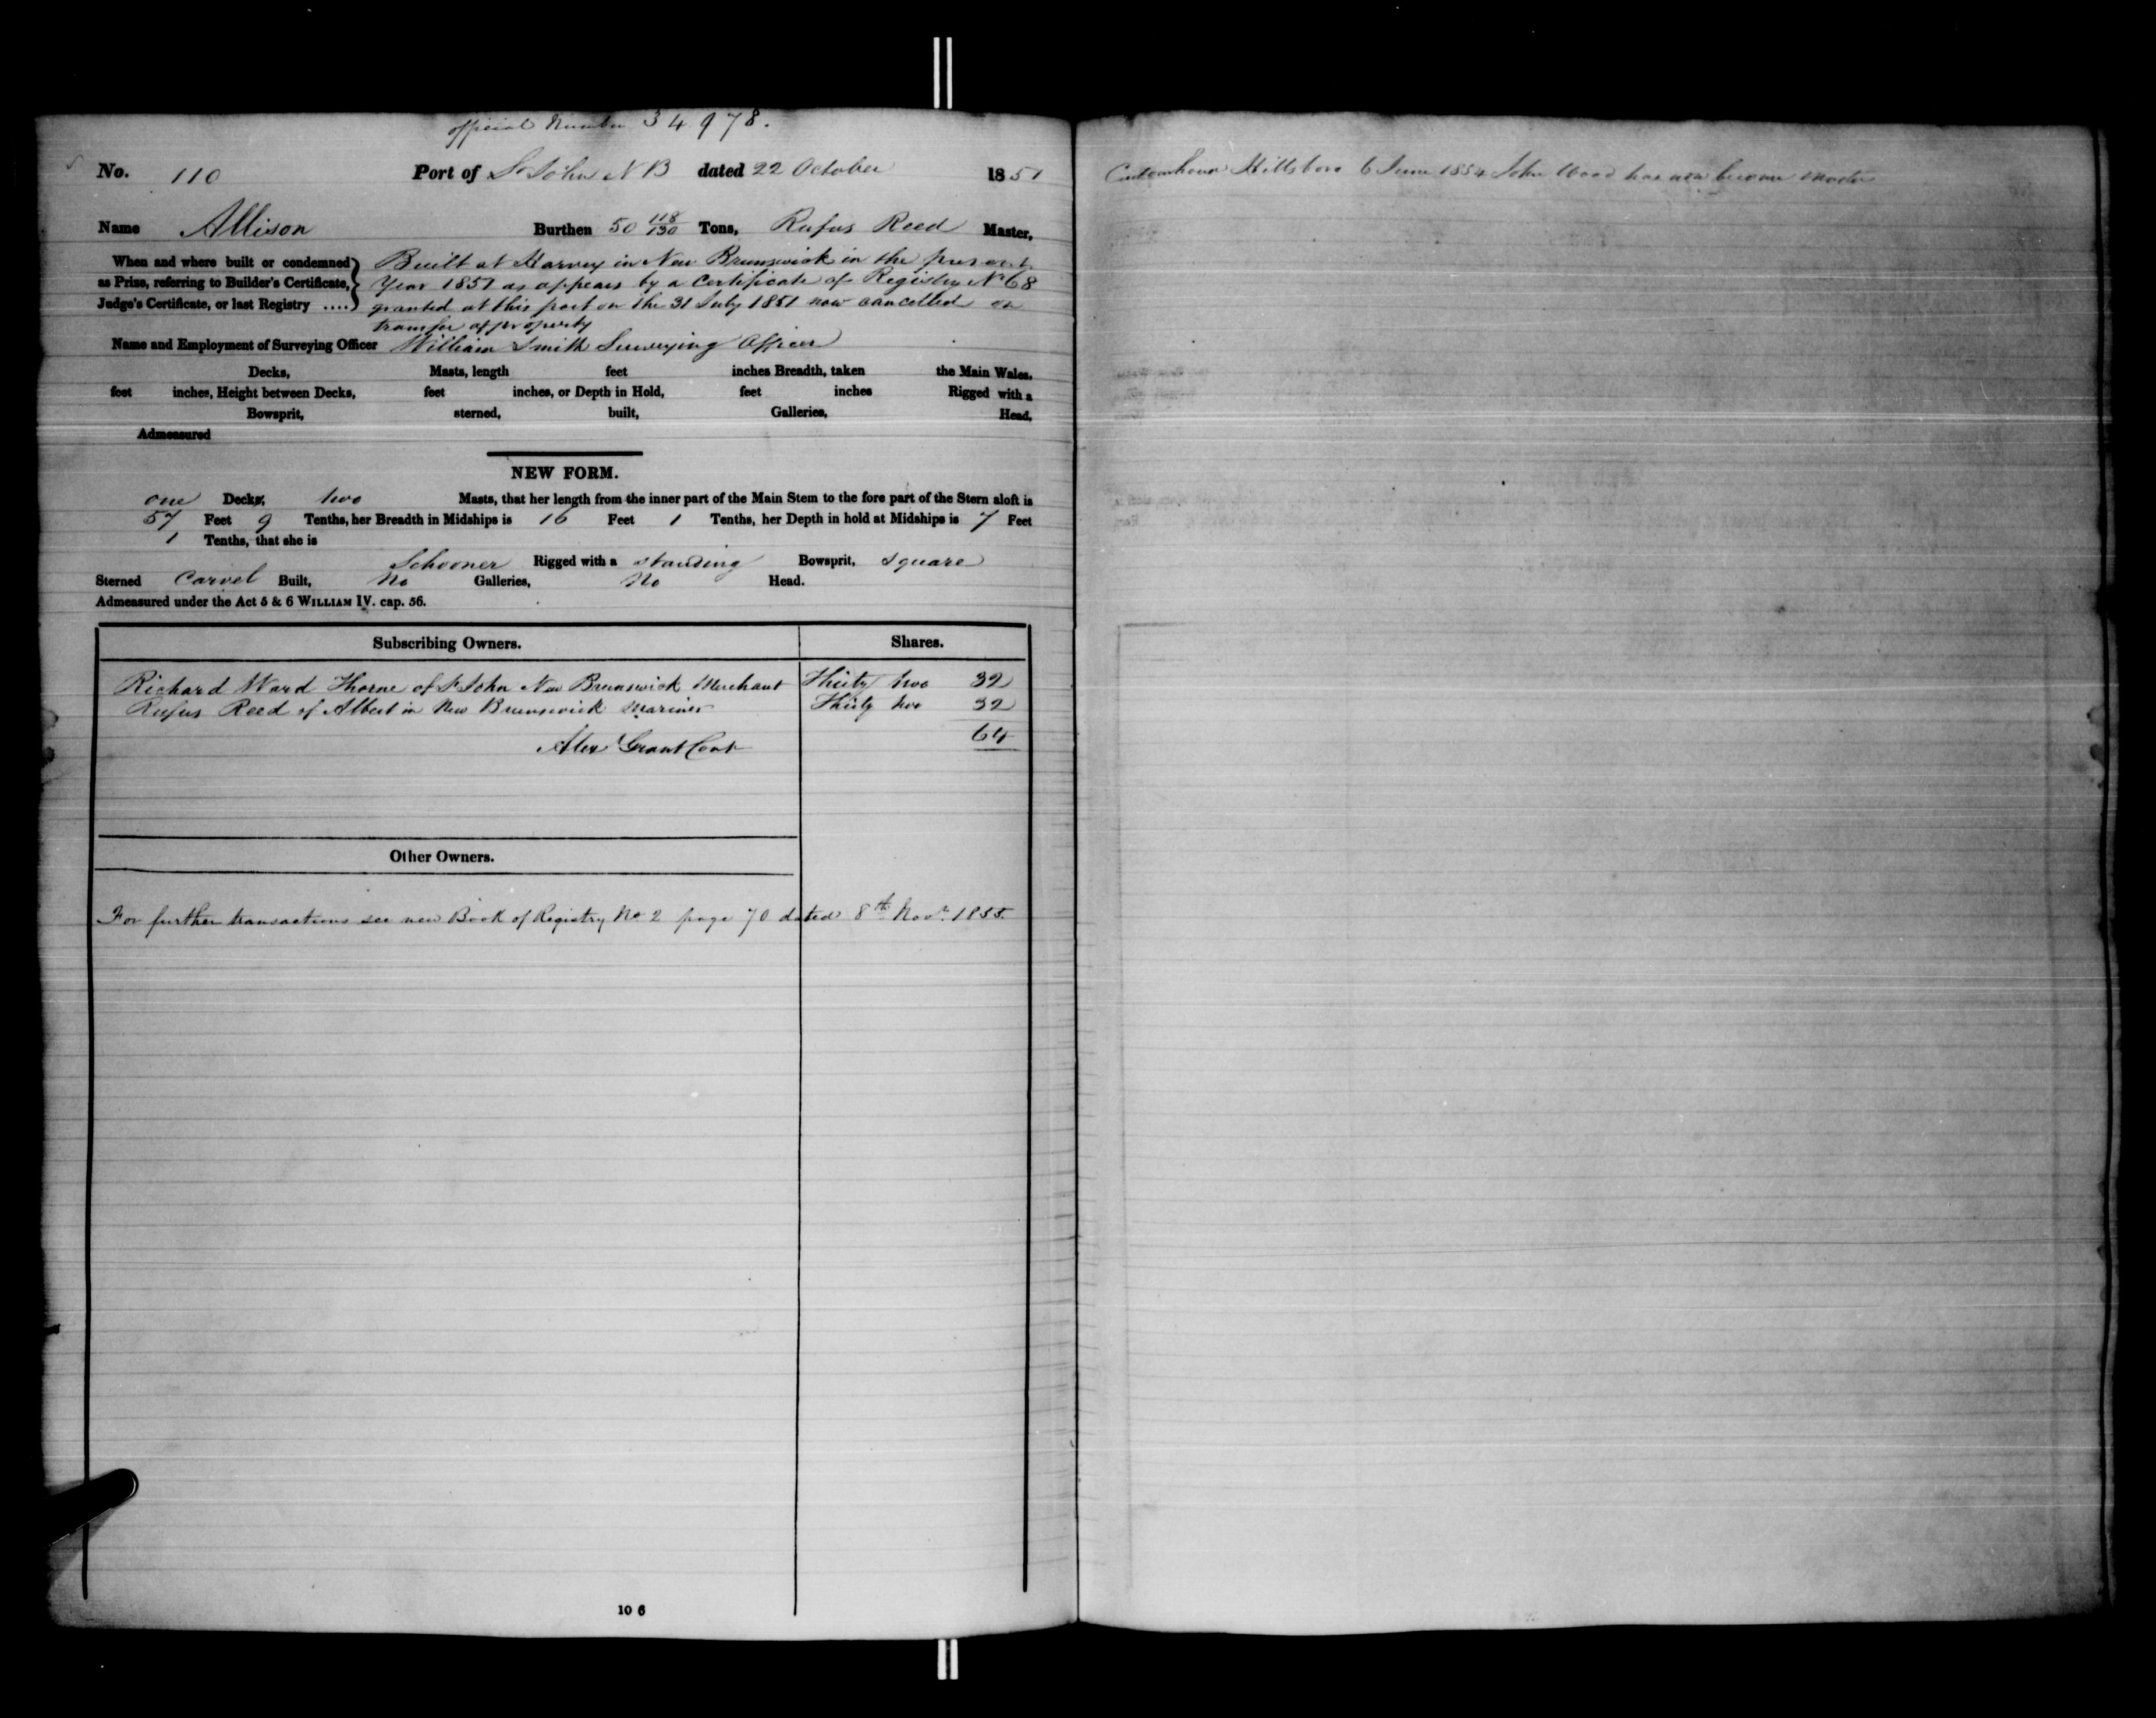 official Number 34.978.
No. 110 Port of St John N B dated 22 October 1851
Name Allison Burthen 50 118/130 Tons, Rufus Reed Master,
When and where built or condemned as Prize, referring to Builder's Certificate, Judge's Certificate, or last Registry ....
Built at Harvey in New Brunswick in the present
Year 1851 as appears by a Certificate of Registry No 68
granted at this port on the 31 July 1851 now cancelled on
transfer of property
Name and Employment of Surveying Officer William Smith Surveying Officer
Decks, Masts, length feet inches Breadth, taken the Main Wales,
feet inches, Height between Decks, feet inches, or Depth in Hold, feet inches Rigged with a
Bowsprit, sterned, built, Galleries, Head,
Admeasured
NEW FORM.
one Decks, two Masts, that her length from the inner part of the Main Stem to the fore part of the Stern aloft is
57 Feet 9 Tenths, her Breadth in Midships is 16 Feet 1 Tenths, her Depth in hold at Midships is 7 Feet
1 Tenths, that she is
Schooner Rigged with a standing Bowsprit, square
Sterned Carvel Built, No Galleries, No Head.
Admeasured under the Act 5 & 6 WILLIAM IV. cap. 56.
Subscribing Owners. Shares.
Richard Ward Thorne of St John New Brunswick Merchant Thirty two 32
Rufus Reed of Albert in New Brunswick Mariner Thirty two 32
Alexr Grant Cont 64
Other Owners.
For further transactions see new Book of Registry No 2 page 70 dated 8th Novr. 1855.
10 6
Customhouse Hillsboro 6 June 1854 John Wood has now become Master